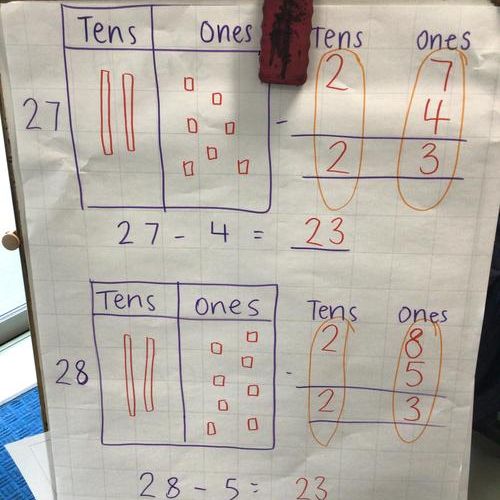 Tens ones Tens ones
27 2 7
- 4
2 3
27 - 4 = 23
Tens ones Tens ones
28 2 8
- 5
2 3
28 - 5 = 23